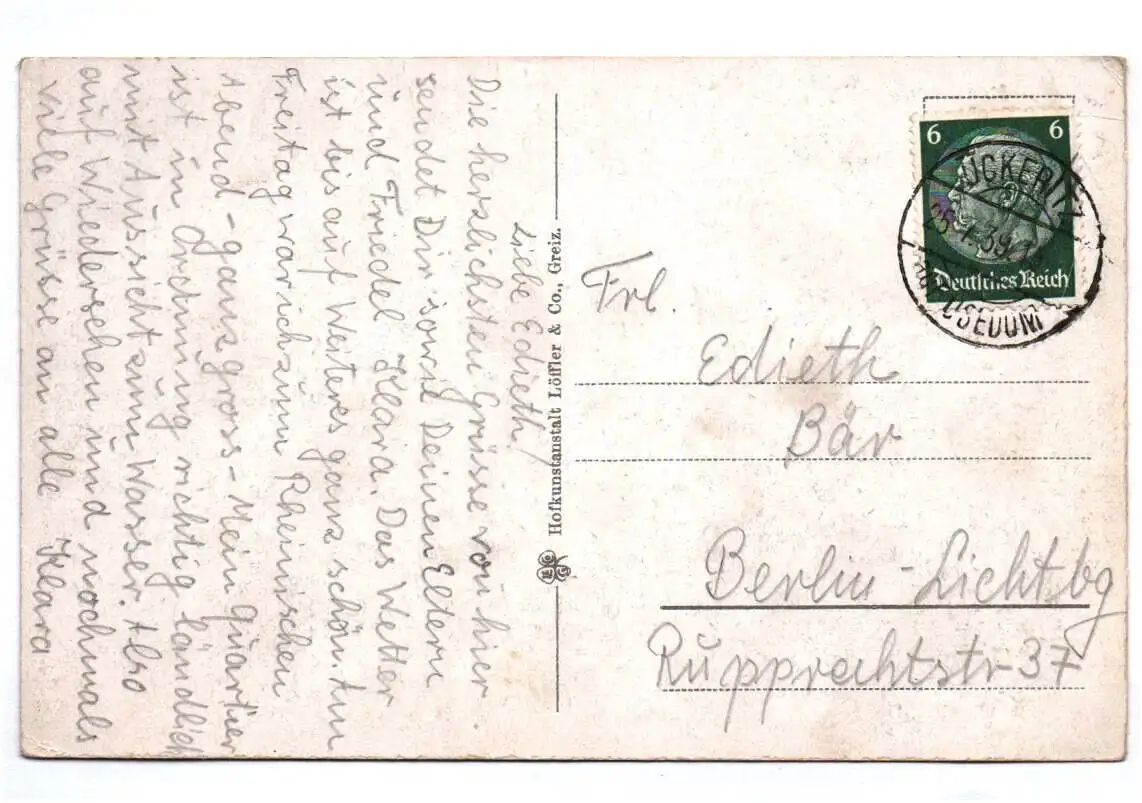 Liebe Edieth!
Die herzlichsten Grüsse von hier
sendet Dir sowie Deinen Eltern
und Friedel Klara. Das Wetter
ist bis auf Weiteres ganz schön. Am
Freitag war ich zum Rheinischen
Abend - ganz gross - Mein Quartier
ist in Ordnung richtig ländlich
mit Aussicht zum Wasser. Also
auf Wiedersehen und nochmals
viele Grüsse an alle Klara
Hofkunstanstalt Löffler & Co., Greiz.
6 6
Deutsches Reich
ÜCKERITZ
25.7.39
USEDOM
Frl.
Edieth
Bär
Berlin-Lichtbg
Rupprechtstr 37